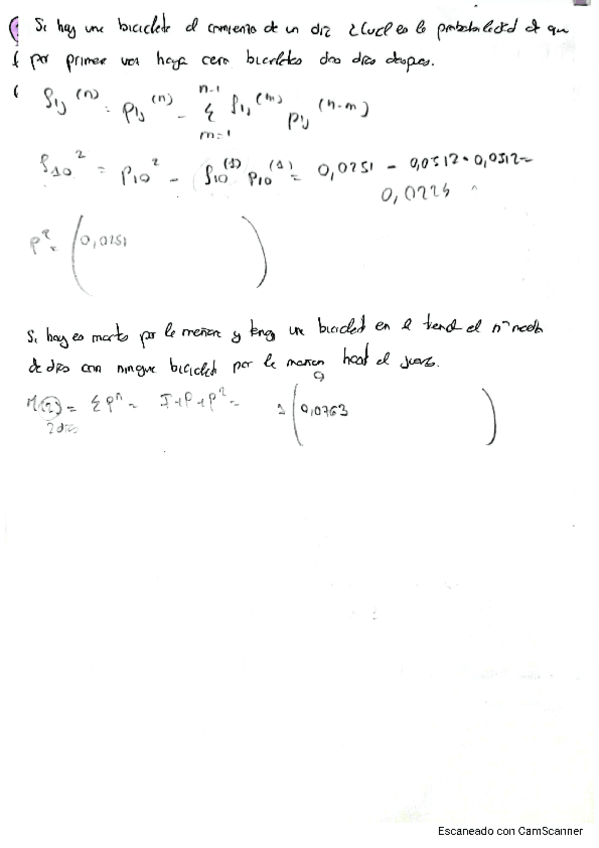 Si hay una bicicleta al comienzo de un día ¿cuál es la probabilidad de que
por primera vez haya cero bicicletas dos días después.
f_ij^(n) = p_ij^(n) - Σ_{m=1}^{n-1} f_ij^(m) p_jj^(n-m)
f_10^2 = p_10^2 - f_10^(1) p_10^(1) = 0,0251 - 0,0512 · 0,0512 =
0,0224
p^2 = ( 0,0251 )
Si hoy es martes por la mañana y tengo una bicicleta en la tienda el nº medio
de días con ninguna bicicleta por la mañana hasta el jueves.
0
M(2) = Σ p^n = I + P + P^2 = 1 ( 0,0763 )
2 días
Escaneado con CamScanner